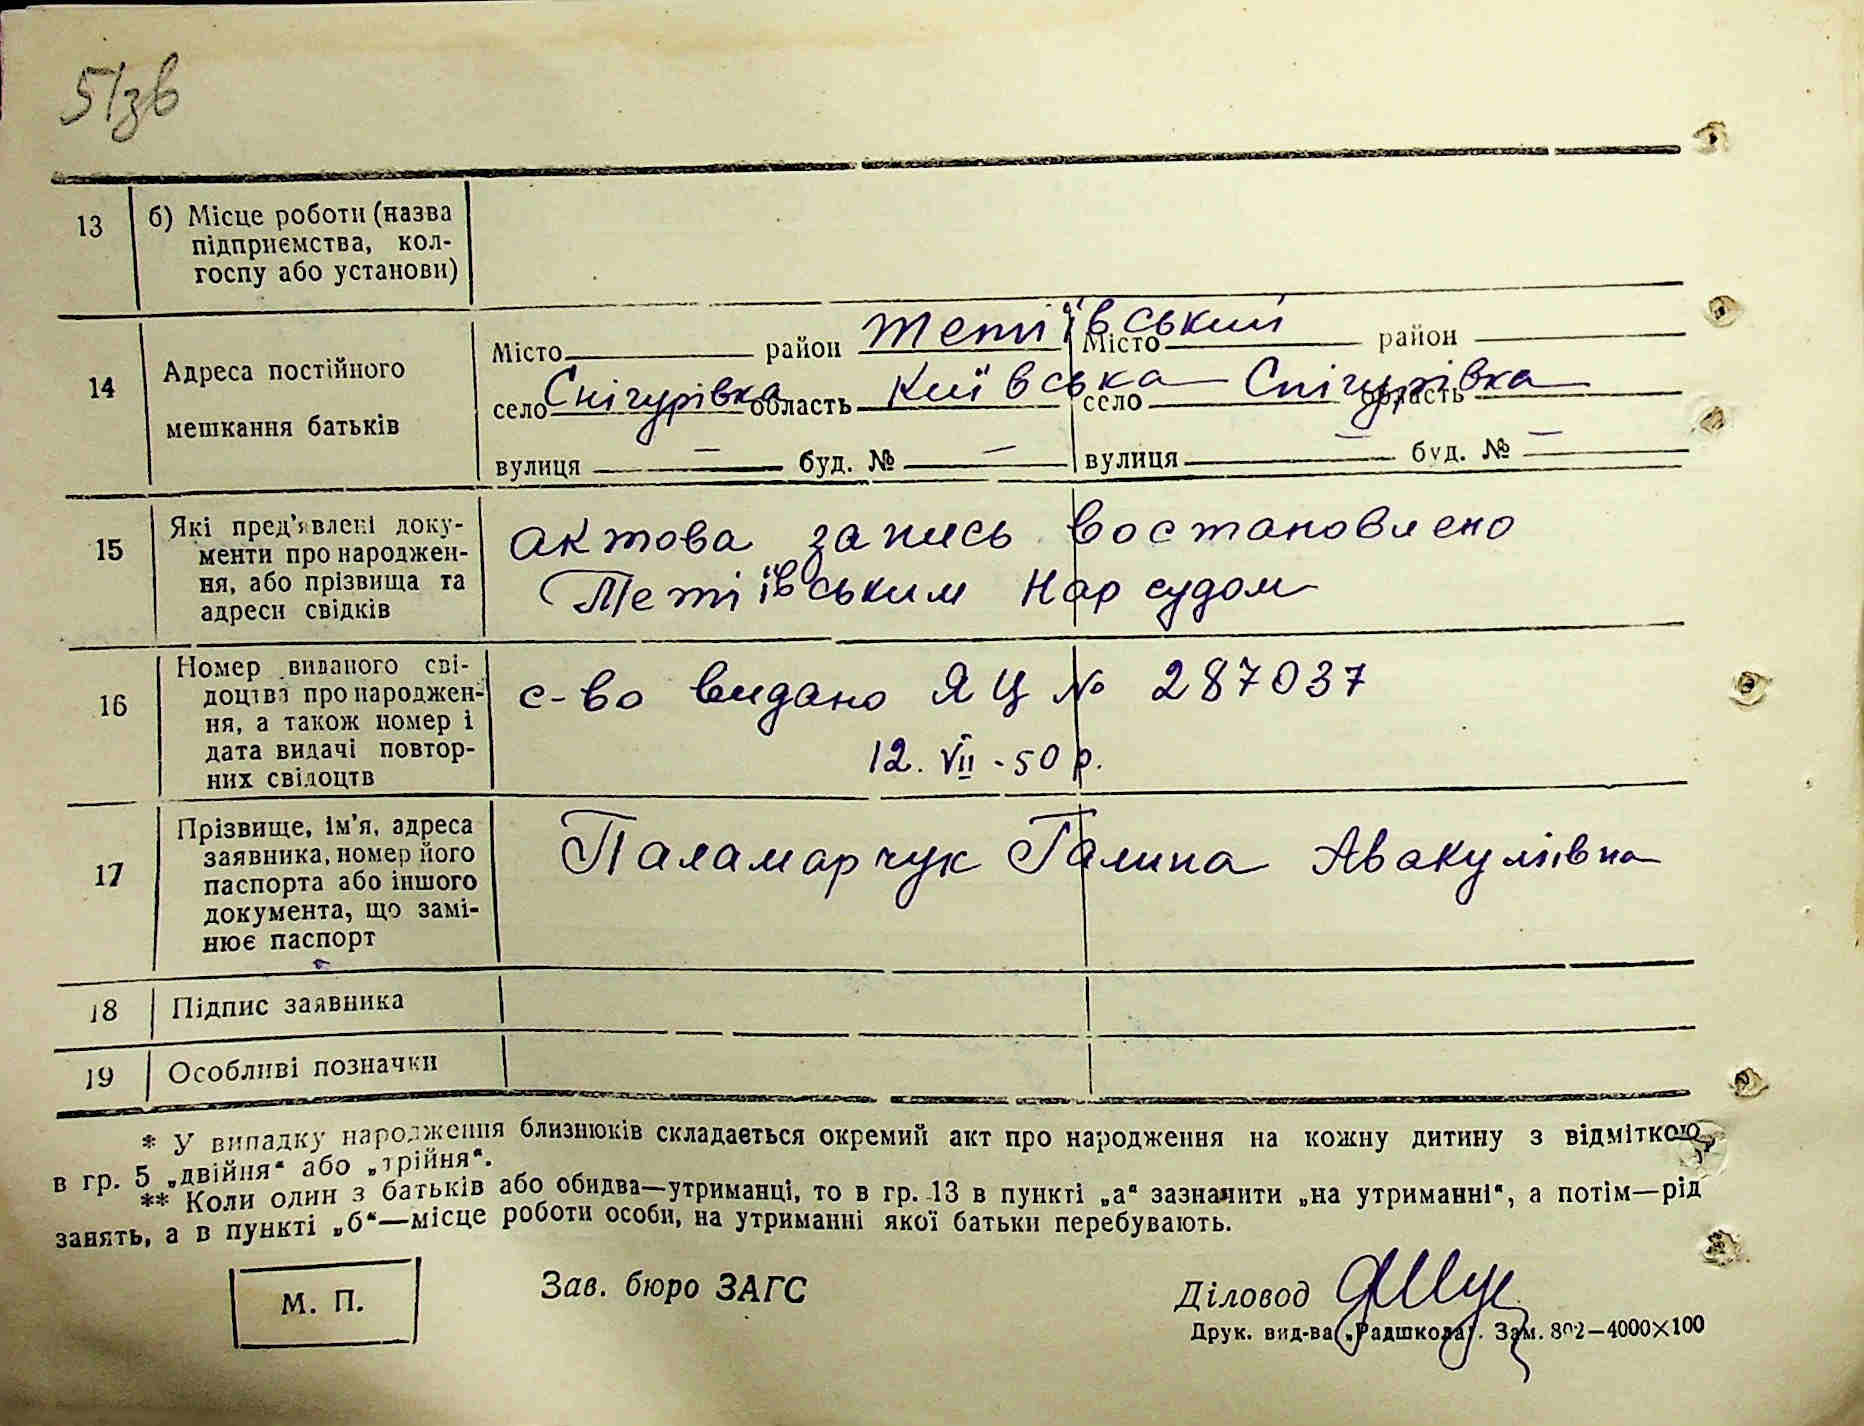 51зв
13 б) Місце роботи (назва
підприємства, кол-
госпу або установи)
14 Адреса постійного
мешкання батьків
Місто район Тетіївський Місто район
село Снігурівка область Київська село Снігурівка область
вулиця – буд. № – вулиця – буд. № –
15 Які пред'явлені доку-
менти про народжен-
ня, або прізвища та
адреси свідків
актова запись востановлено
Тетіївським Нар судом
16 Номер виданого сві-
доцтва про народжен-
ня, а також номер і
дата видачі повтор-
них свідоцтв
с-во видано ЯЦ № 287037
12. VII - 50 р.
17 Прізвище, ім'я, адреса
заявника, номер його
паспорта або іншого
документа, що замі-
нює паспорт
Паламарчук Галина Авакумівна
18 Підпис заявника
19 Особливі позначки
* У випадку народження близнюків складається окремий акт про народження на кожну дитину з відміткою
в гр. 5 „двійня" або „трійня".
** Коли один з батьків або обидва—утриманці, то в гр. 13 в пункті „а" зазначити „на утриманні", а потім—рід
занять, а в пункті „б"—місце роботи особи, на утриманні якої батьки перебувають.
М. П. Зав. бюро ЗАГС Діловод
Друк. вид-ва „Радшкола". Зам. 802—4000×100